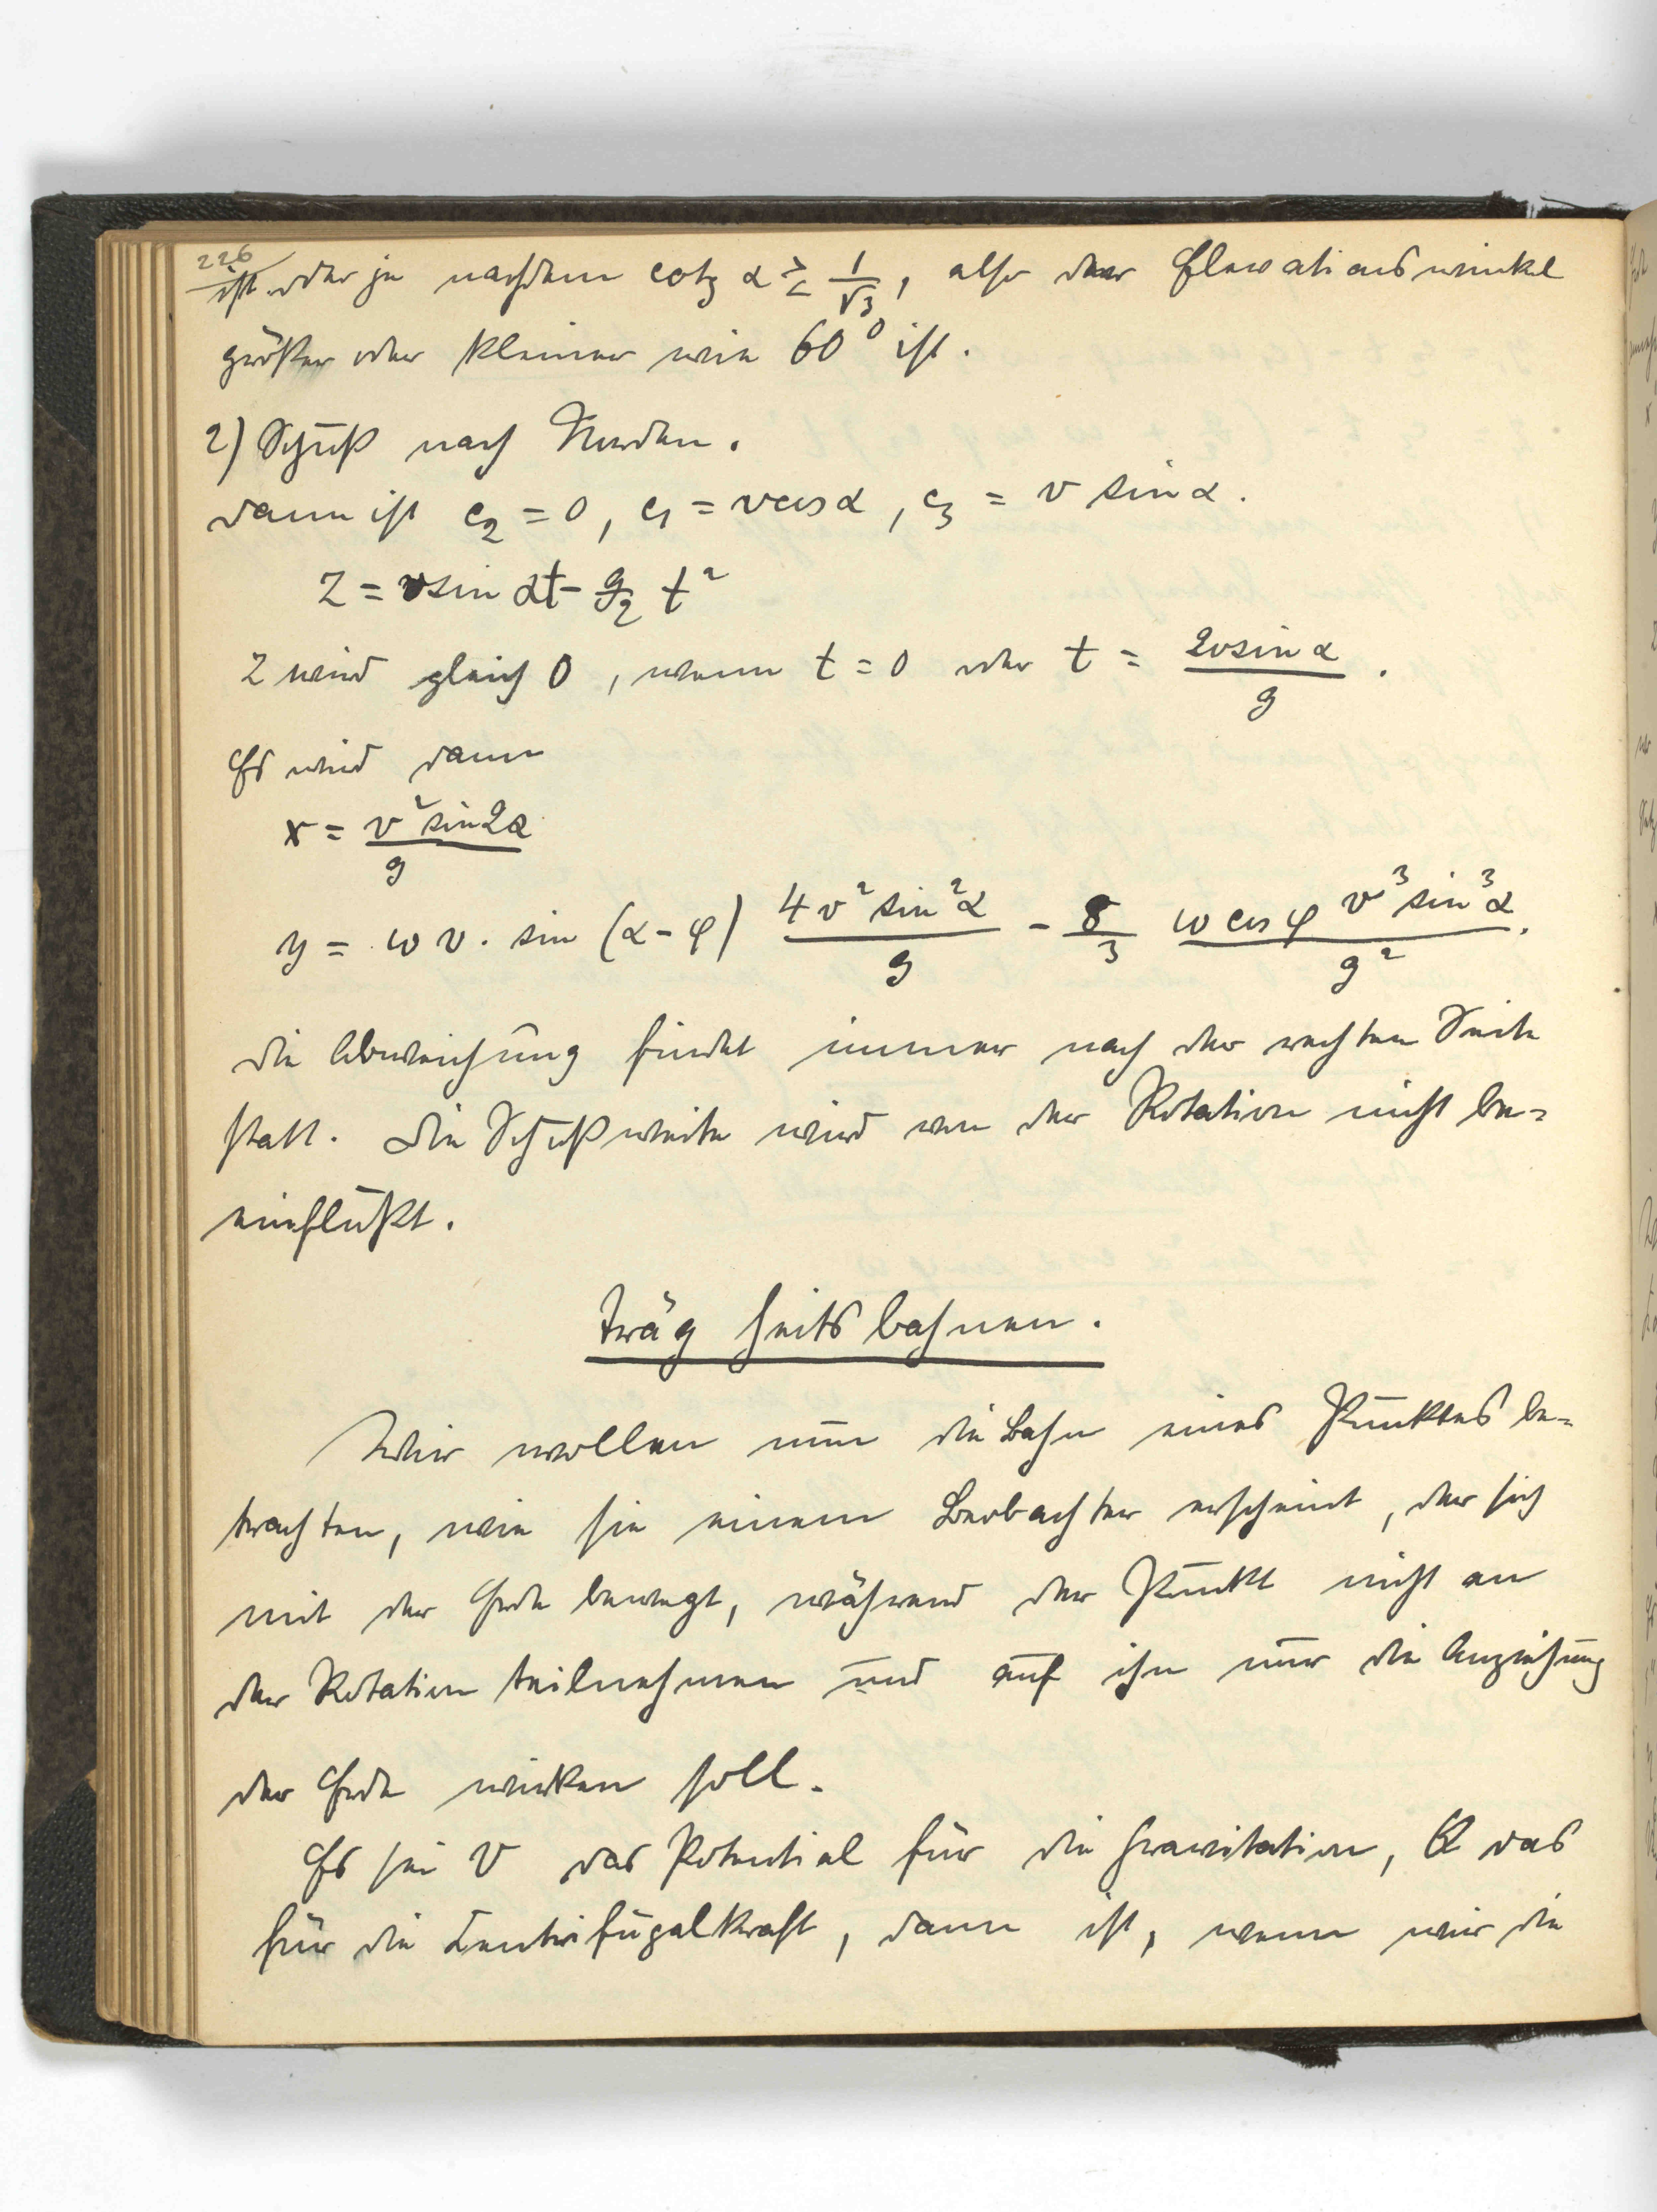 226
ist oder je nachdem cotg α ≷ 1/√3, also der Elevationswinkel
größer oder kleiner wie 60° ist.
2) Schuß nach Norden.
dann ist c₂ = 0, c₁ = v cos α, c₃ = v sin α.
z = v sin αt - g/2 t²
z wird gleich 0, wenn t = 0 oder t = 2v sin α / g.
Es wird dann
x = v² sin 2α / g
y = ω v. sin (α - φ) 4v² sin² α / g - 8/3 ω cos φ v³ sin³ α / g².
die Abweichung findet immer nach der rechten Seite
statt. Die Schußweite wird von der Rotation nicht be=
einflußt.
Trägheitsbahnen.
Wir wollen nun die Bahn eines Punktes be=
trachten, wie sie einem Beobachter erscheint, der sich
mit der Erde bewegt, während der Punkt nicht an
der Rotation teilnehmen und auf ihn nur die Anziehung
der Erde wirken soll.
Es sei V das Potential für die Gravitation, Q das
für die Zentrifugalkraft, dann ist, wenn wir die